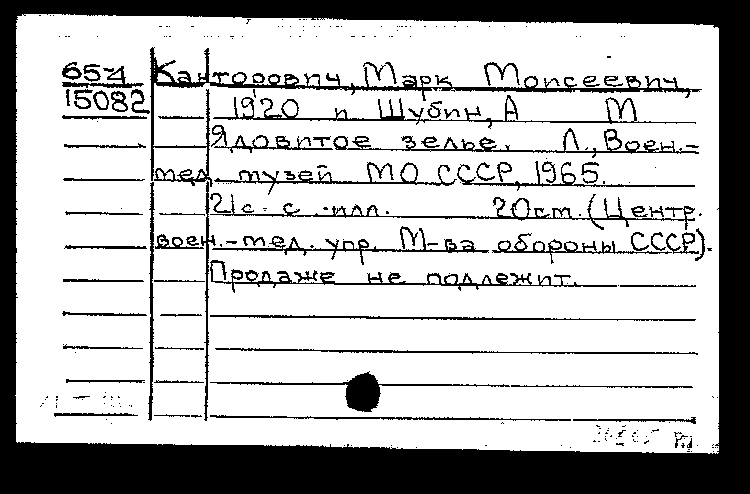 65-4 Канторович, Марк Моисеевич,
15082 1920 и Шубин, А М
Ядовитое зелье. Л., Воен.-
мед. музей МО СССР, 1965.
21с. с илл. 20см. (Центр.
воен.-мед. упр. М-ва обороны СССР).
Продаже не подлежит.